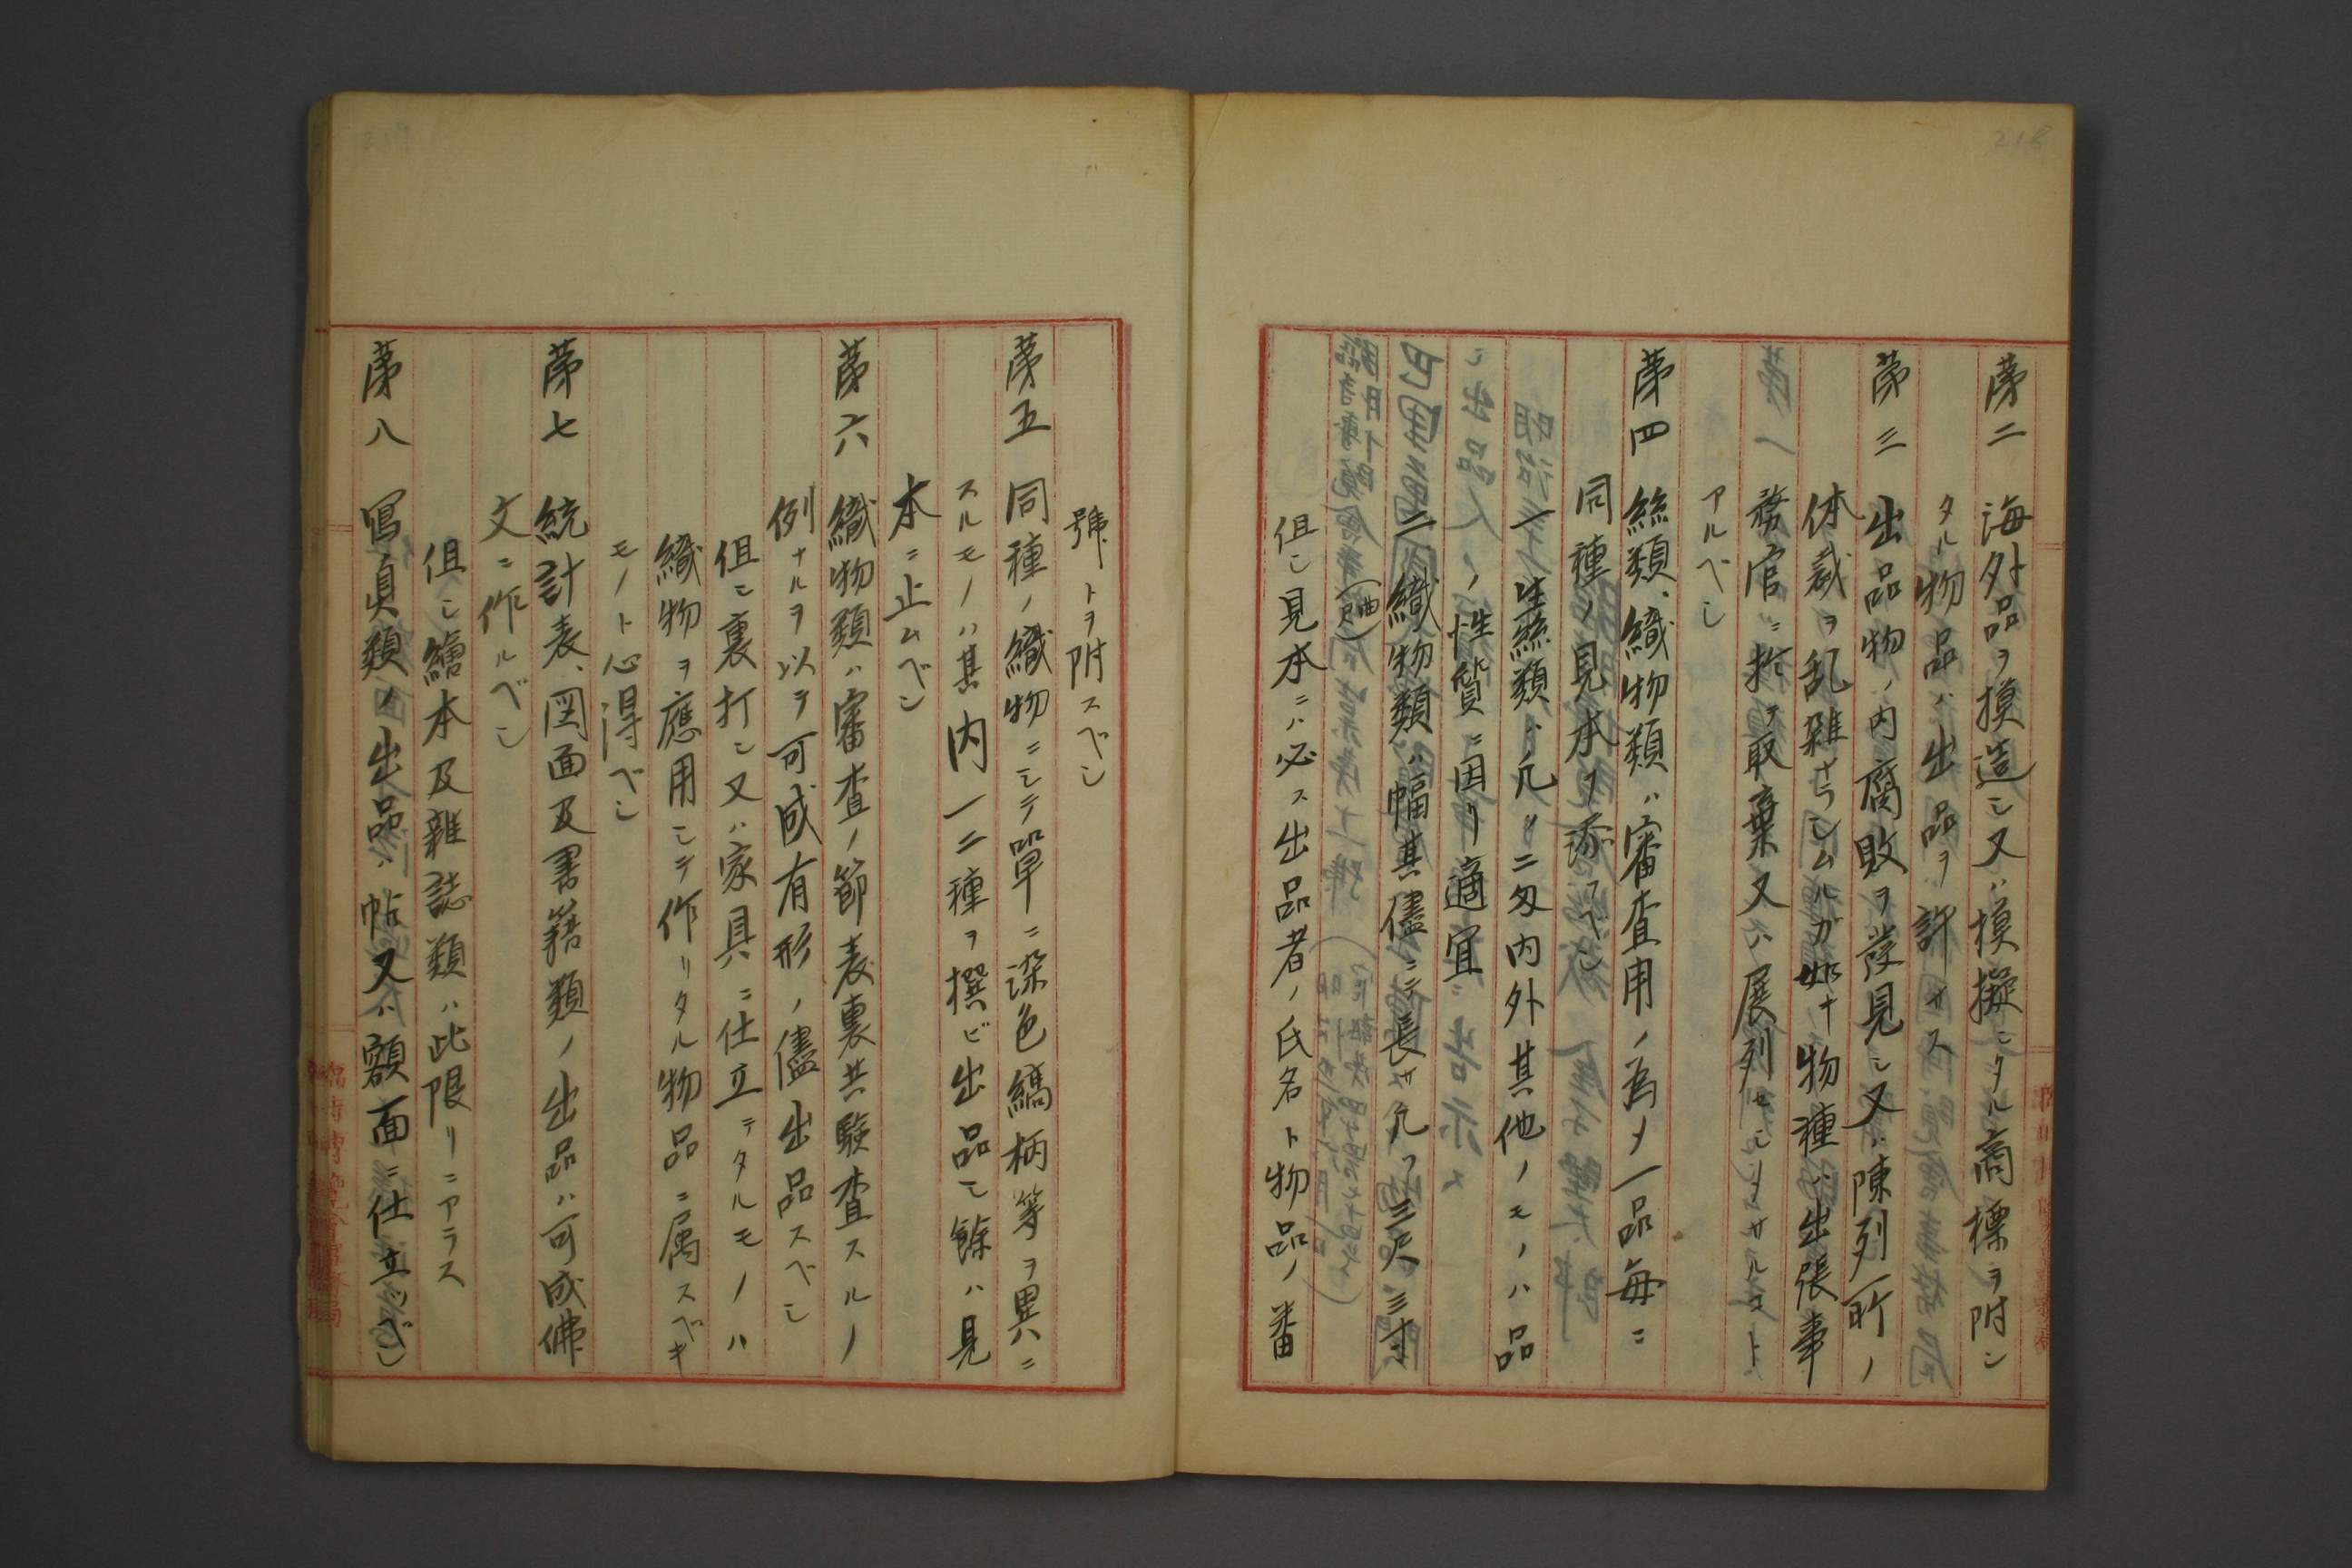 218
第二　海外品ヲ摸造シ又ハ摸擬シタル商標ヲ附シ
タル物品ハ出品ヲ許サス
第三　出品物ノ内腐敗ヲ發見シ又ハ陳列所ノ
体裁ヲ乱雑ナラシムルガ如キ物種ハ出張事
務官ニ於テ取棄又ハ展列セシメサルコト
アルベシ
第四　絲類、織物類ハ審査用ノ為メ一品毎ニ
同種ノ見本ヲ添フベシ
一　生絲類ハ凡ソ二匁内外其他ノモノハ品
ノ性質ニ因リ適宜
二　織物類ハ幅其儘ニテ長サ凡ソ三尺三寸（曲尺）
但シ見本ニハ必ス出品者ノ氏名ト物品ノ番
號トヲ附スベシ
第五　同種ノ織物ニシテ單ニ染色縞柄等ヲ異ニ
スルモノハ其内一二種ヲ撰ビ出品シ餘ハ見
本ニ止ムベシ
第六　織物類ハ審査ノ節表裏共驗査スルノ
例ナルヲ以テ可成有形ノ儘出品スベシ
但シ裏打シ又ハ家具ニ仕立テタルモノハ
織物ヲ應用シテ作リタル物品ニ属スベキ
モノト心得ベシ
第七　統計表、図面及書籍類ノ出品ハ可成佛
文ニ作ルベシ
但シ繪本及雜誌類ハ此限リニアラス
第八　寫眞類ノ出品ハ帖又ハ額面ニ仕立ツベシ